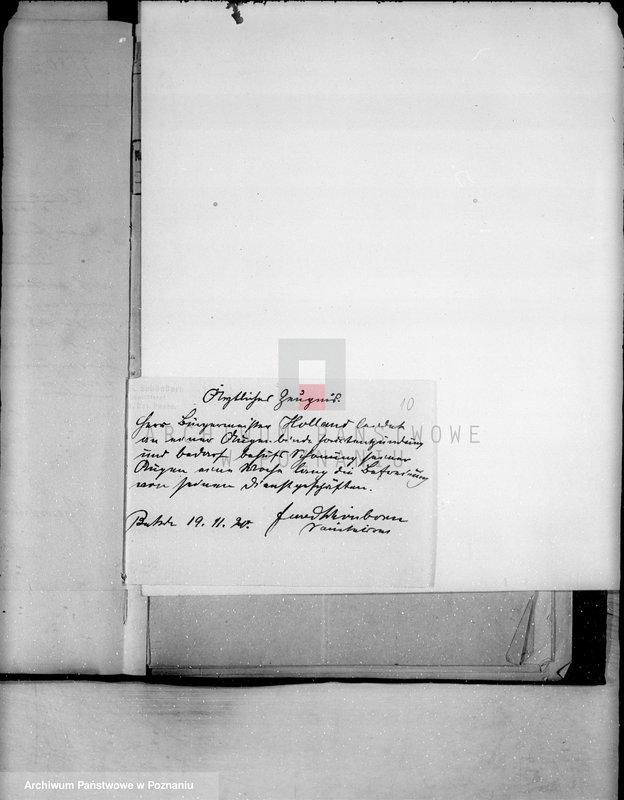 Ärztliches Zeugnis.
10
Herr Bürgermeister Holland leidet
an einer Augenbindehautentzündung
und bedarf behufs Schonung seiner
Augen eine Woche lang die Befreiung
von seinen Dienstgeschäften.
19. 11. 20.
Sanitätsrat
ARCHIWUM PAŃSTWOWE
W POZNANIU
Archiwum Państwowe w Poznaniu